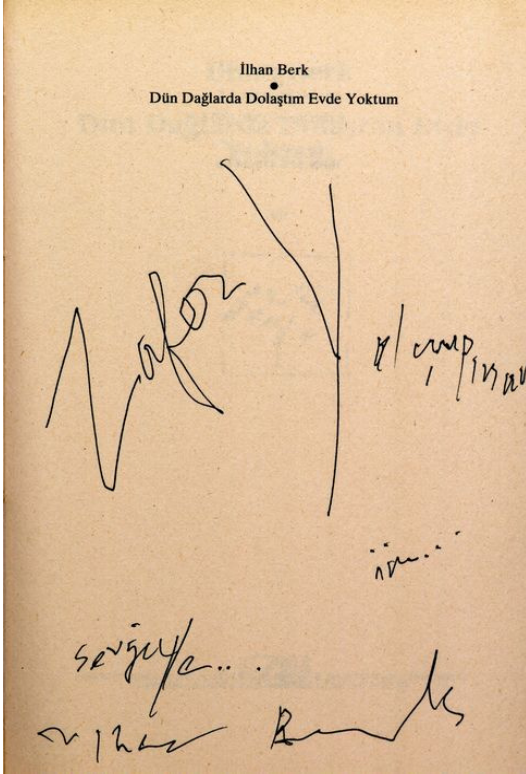 İlhan Berk
Dün Dağlarda Dolaştım Evde Yoktum
Zafer Yalçınpınar
için...
sevgiyle...
İlhan Berk